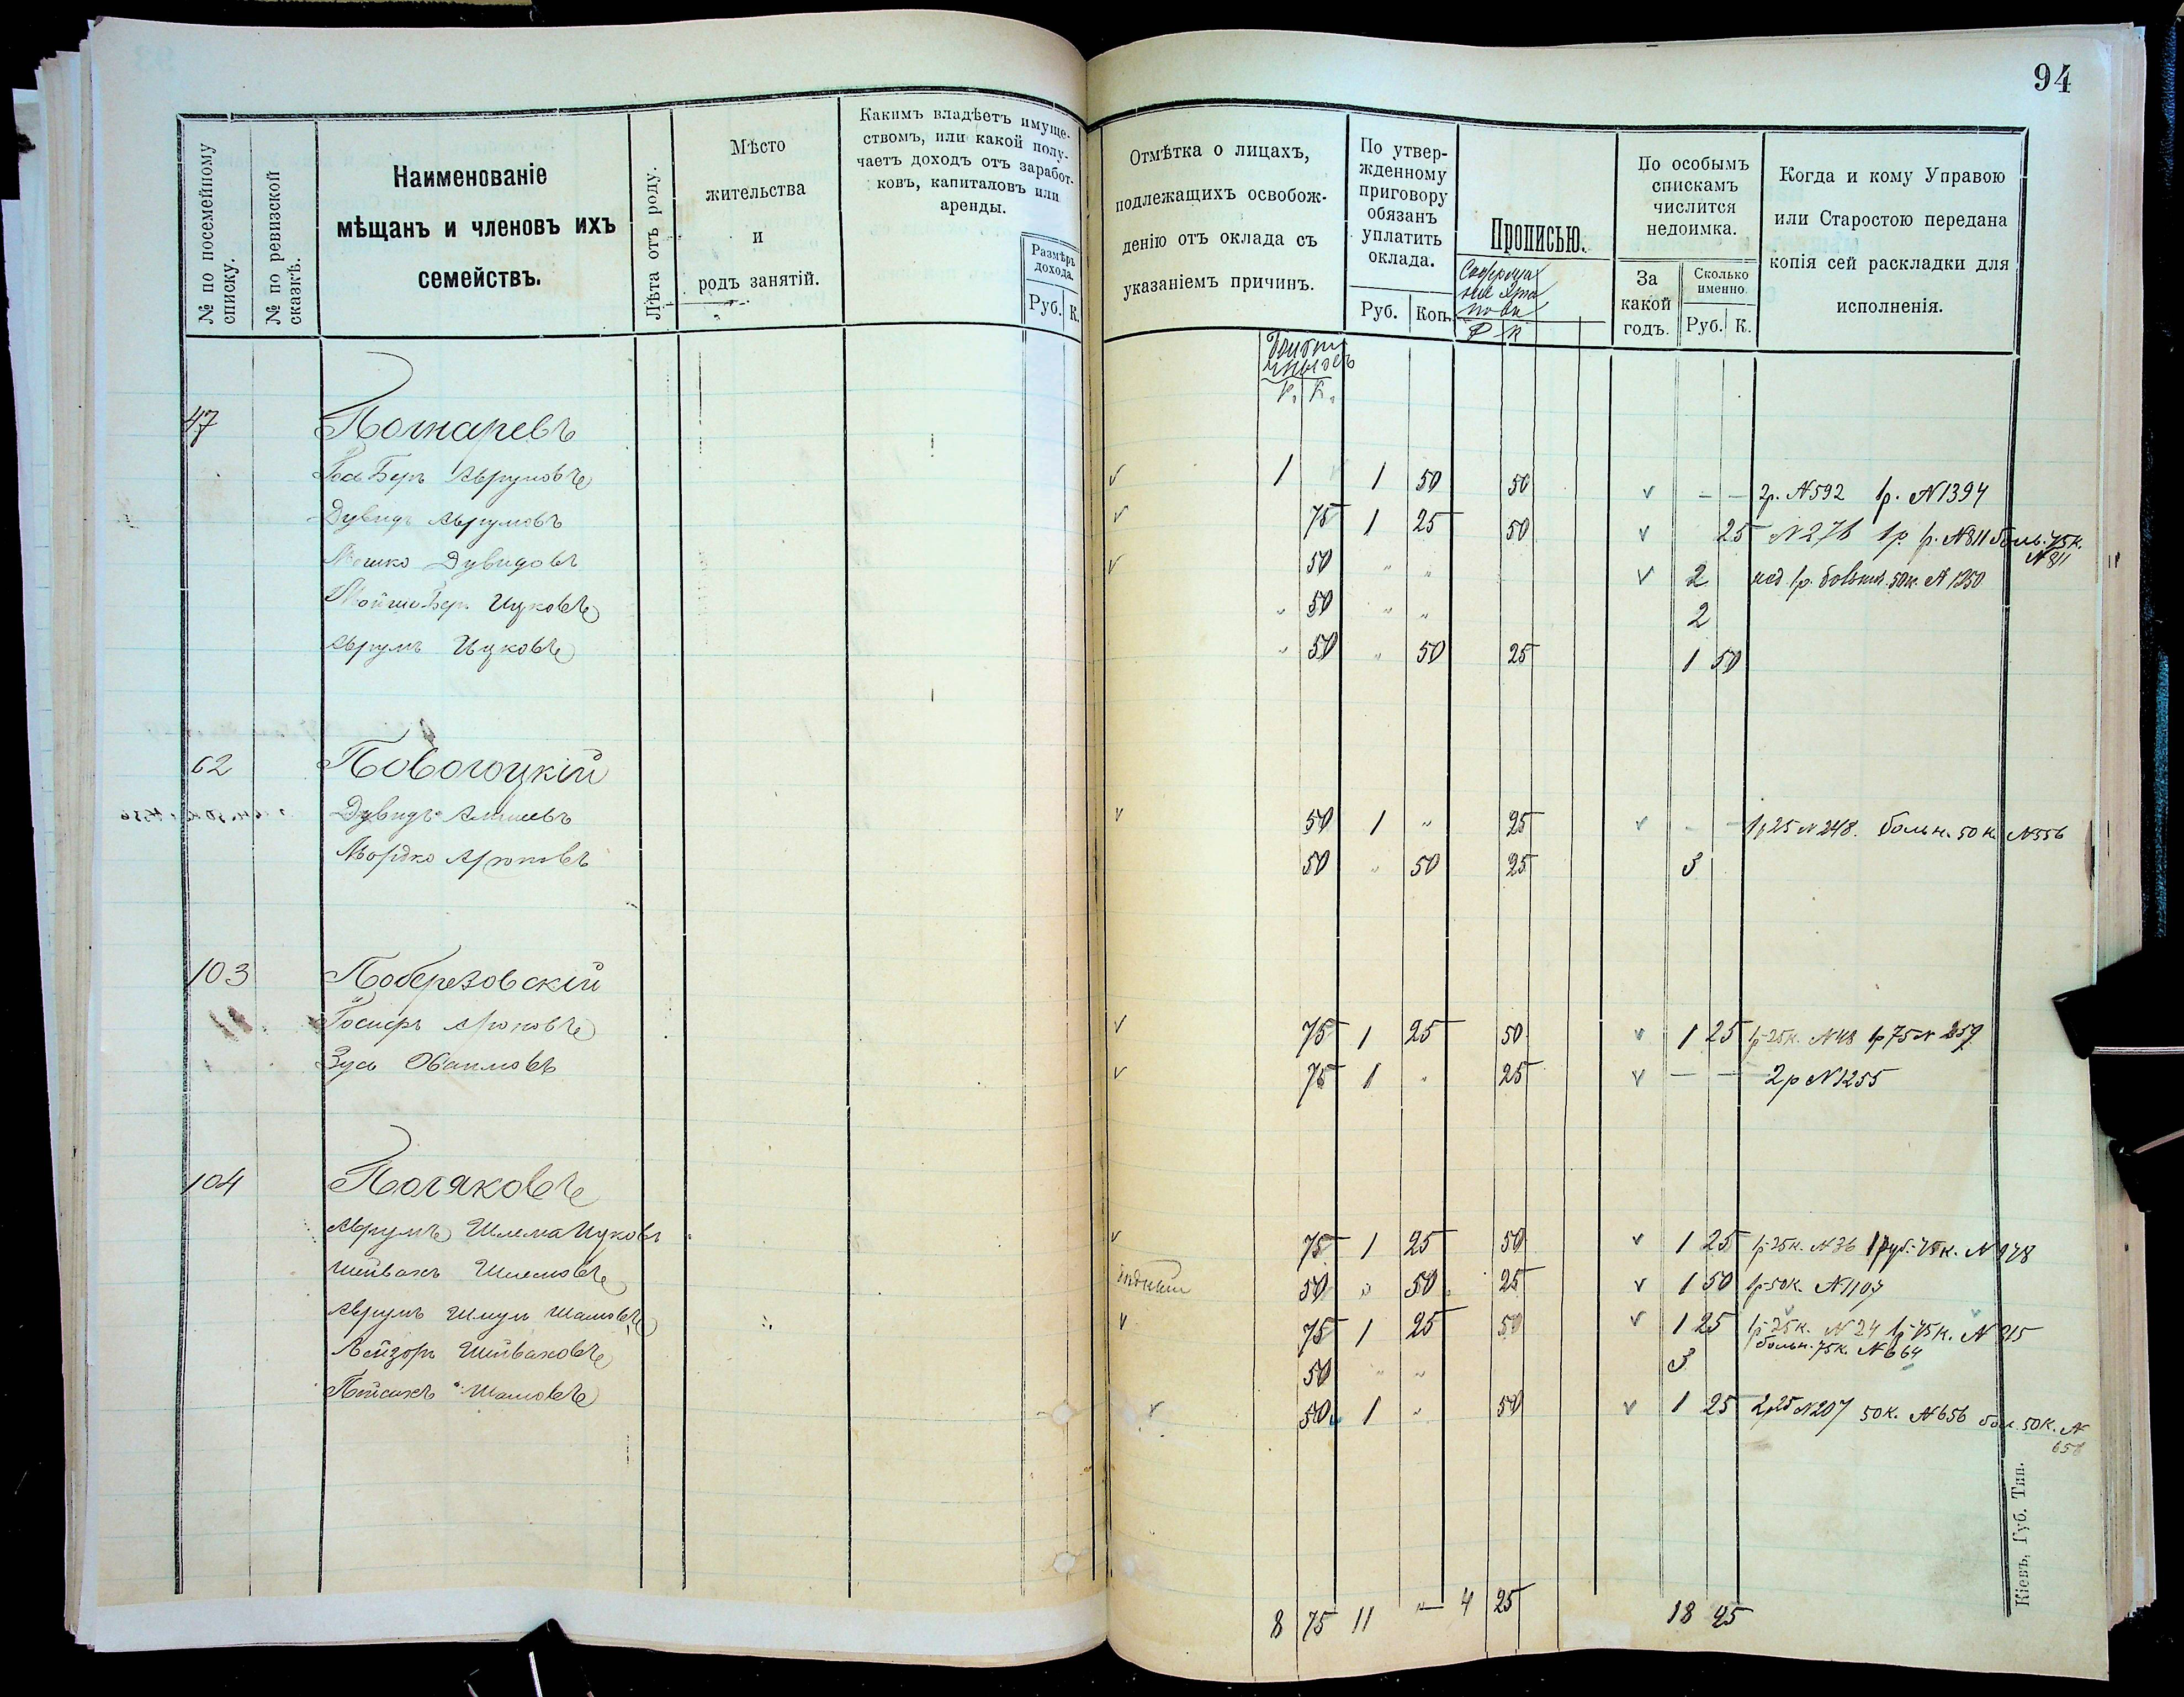 94
№ по посемейному списку.
№ по ревизской сказкѣ.
Наименованіе
мѣщанъ и членовъ ихъ
семействъ.
Лѣта отъ роду.
Мѣсто
жительства
и
родъ занятій.
Какимъ владѣетъ имуще-
ствомъ, или какой полу-
чаетъ доходъ отъ заработ-
ковъ, капиталовъ или
аренды.
Размѣръ
дохода.
Руб. К.
Отмѣтка о лицахъ,
подлежащихъ освобож-
денію отъ оклада съ
указаніемъ причинъ.
По утвер-
жденному
приговору
обязанъ
уплатить
оклада.
Руб. Коп.
Прописью.
Р К
По особымъ
спискамъ
числится
недоимка.
За
какой
годъ.
Сколько
именно.
Руб. К.
Когда и кому Управою
или Старостою передана
копія сей раскладки для
исполненія.
Р. К.
47 Пожаревъ
Іось Беръ Аврумовъ 1 1 50 50 – – 2р. №592 1р. №1394
Дувидъ Аврумовъ 75 1 25 50 25 №276 1р. №811 боль. 75к.
№811
Мошко Дувидовъ 50 " " 2 1р. больнич. 50к. №1250
Мойше Беръ Ицковъ " 50 " " 2
Аврумъ Ицковъ " 50 " 50 25 1 50
62 Поволоцкій
Дувидъ 50 1 " 25 – – 1р25 №248. больн. 50к. №556
Мордко Ароновъ 50 " 50 25 3
103 Поберезовскій
Іосифъ Ароновъ 75 1 25 50 1 25 1р-25к. №48 1р75 № 259
Зусь 75 1 " 25 – – 2р №1255
104 Поляковъ
Аврумъ Шлема Ицковъ 75 1 25 50 1 25 1р-25к. №36 1руб.-75к. №978
Шейвахъ Шлемовъ 50 " 50 25 1 50 1р-50к. №1107
Аврумъ Шмуль 75 1 25 50 1 25 1р-25к. №24 1р-75к. №815
больн. 75к. №664
Лейзоръ Шейваховъ 50 " " 3
Пейсахъ 50 1 " 50 1 25 2р25 №207 50к. №656 бол. 50к. №
656
8 75 11 " 4 25 18 25
Кіевъ, Губ. Тип.